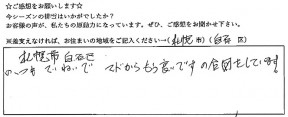 ☆ご感想をお願いします☆
今シーズンの排雪はいかがでしたか？
お客様の声が、私たちの原動力になっています。ぜひ、ご感想をお聞かせ下さい。
※差支えなければ、お住まいの地域をご記入ください→(札幌市)(白石区)
札幌市白石区
いつも ていねいで マドからもう良いですの合図をしています